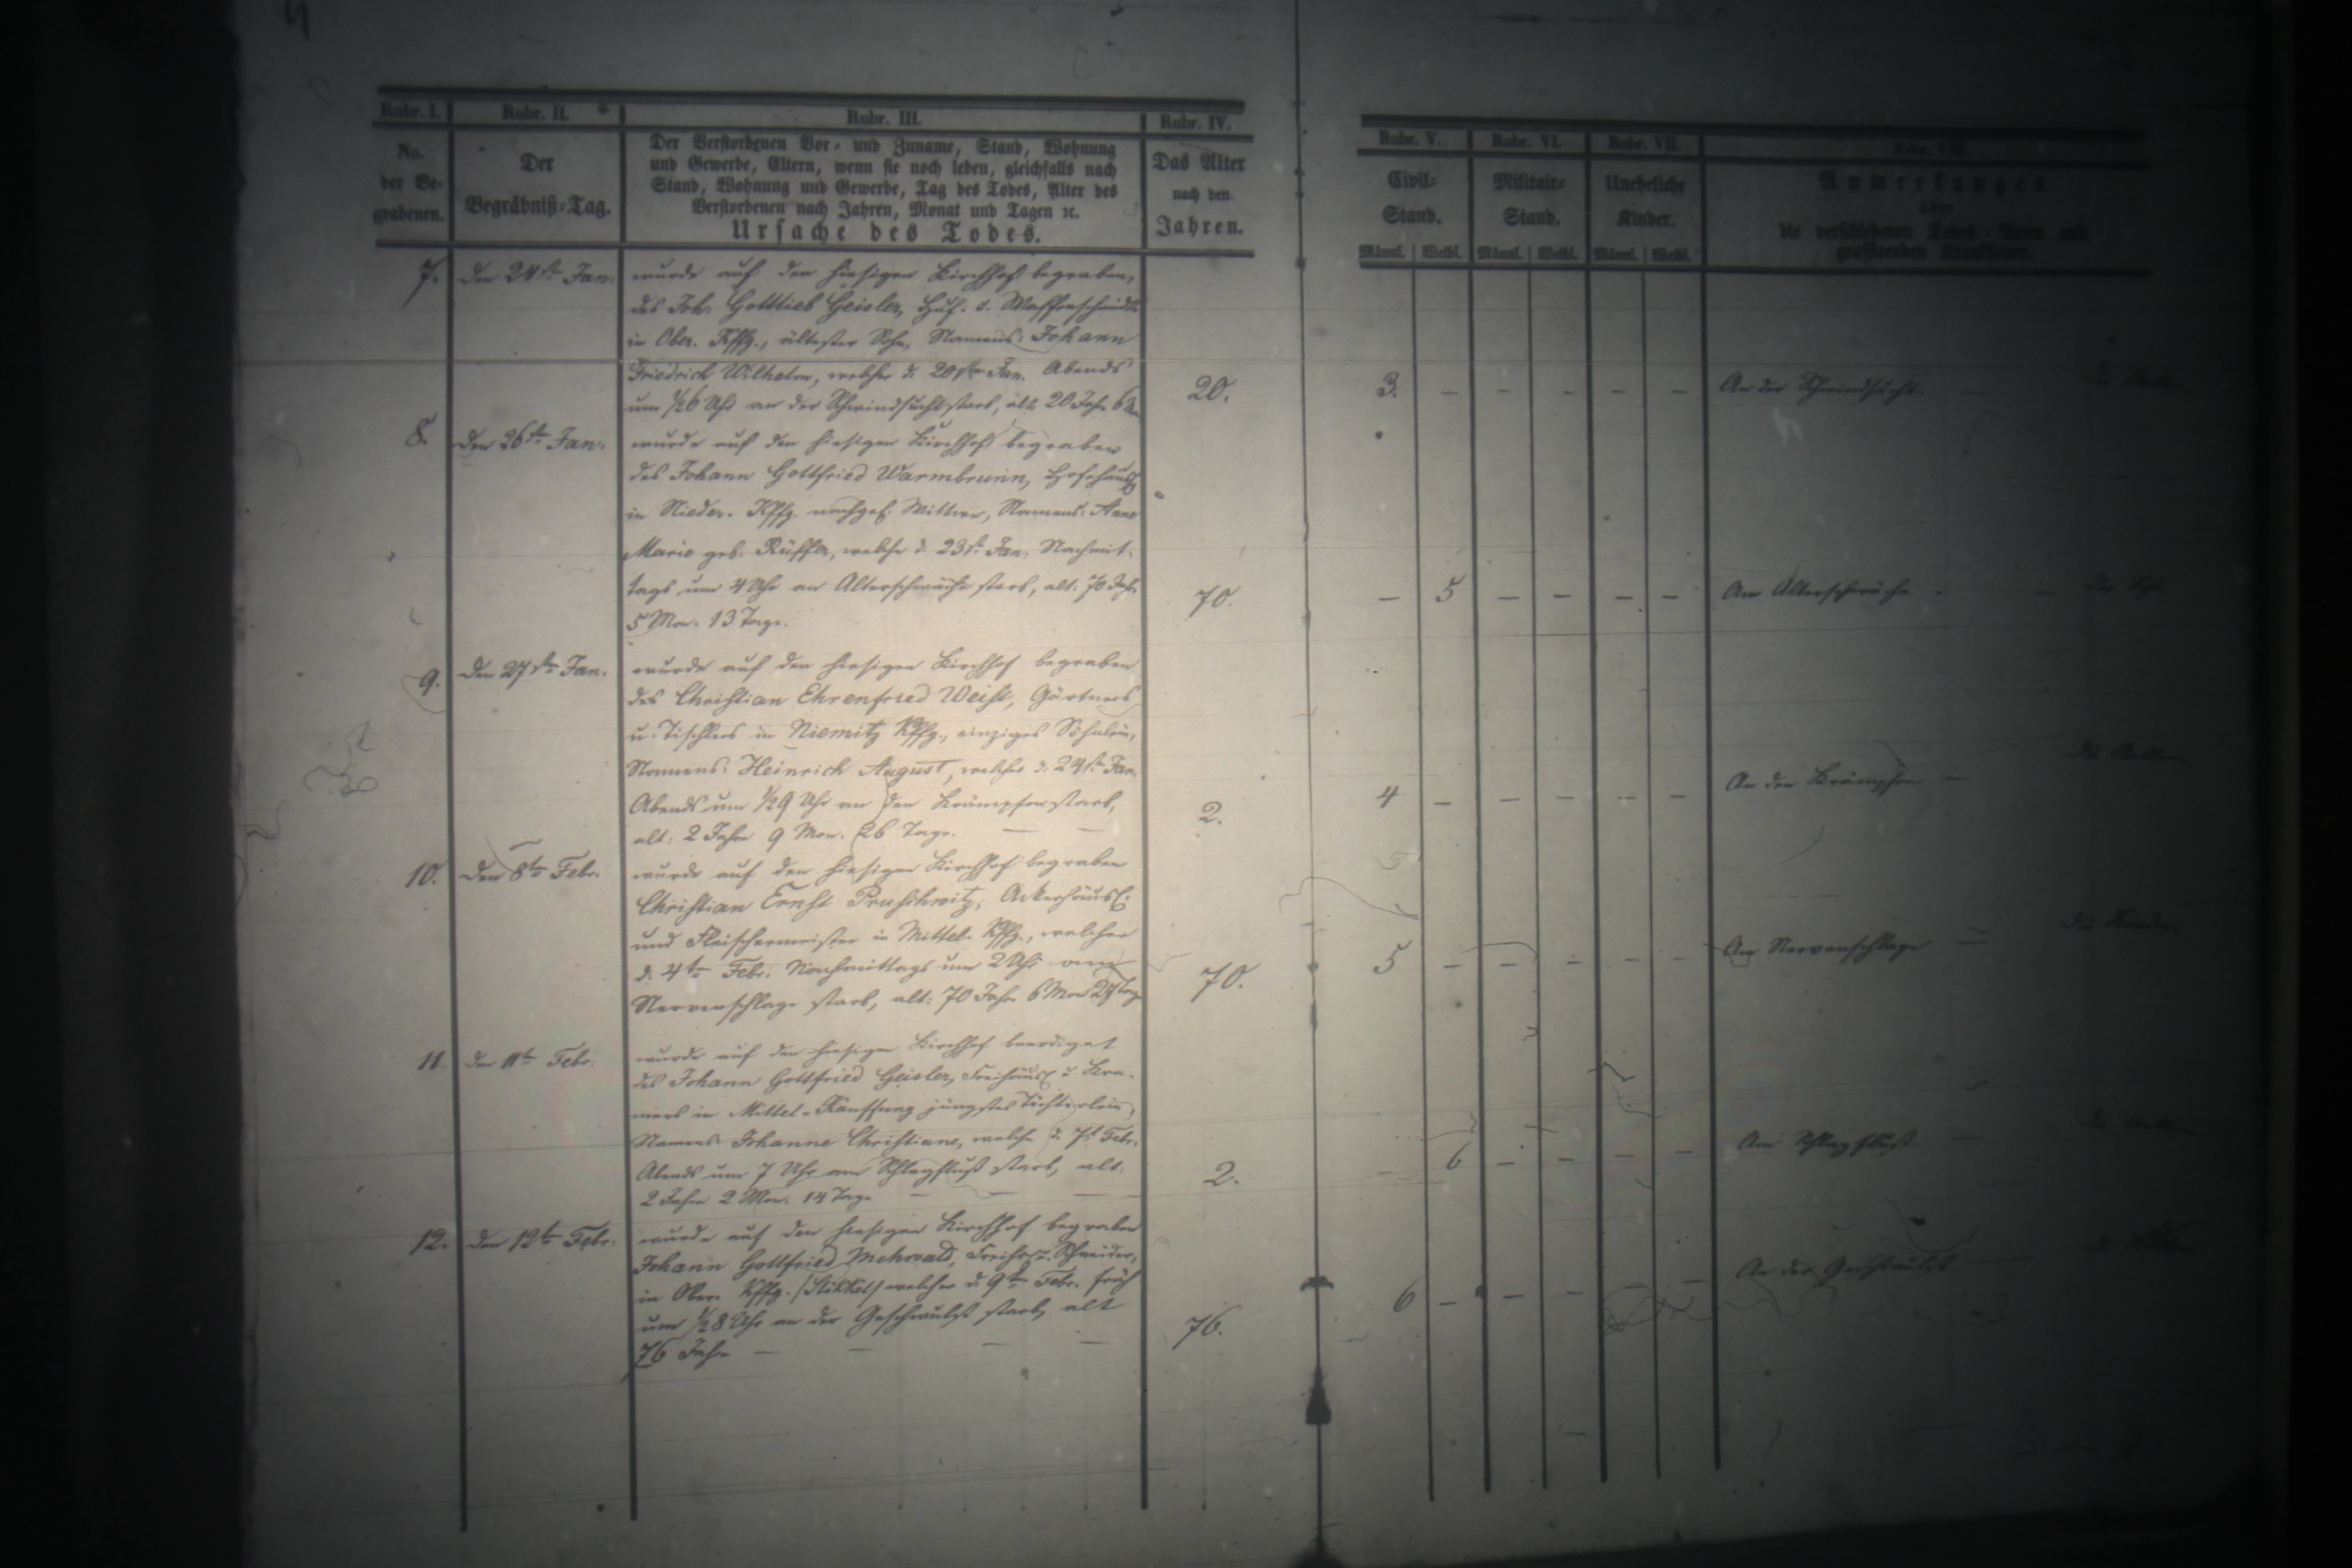 Rubr. I. Rubr. II. Rubr. III. Rubr. IV.
No. der Be- grabenen.
Der Begräbniß-Tag.
Der Verstorbenen Vor- und Zuname, Stand, Wohnung
und Gewerbe, Eltern, wenn sie noch leben, gleichfalls nach
Stand, Wohnung und Gewerbe, Tag des Todes, Alter des
Verstorbenen nach Jahren, Monat und Tagen ꝛc.
Ursache des Todes.
Das Alter nach den Jahren.
7. Den 24st. Jan: wurde auf den hiesigen Kirchhof begraben,
des Joh. Gottlieb Geisler, Huf- u. Waffenschmidts
in Ober-Kffg., ältester Sohn, Namens: Johann
Friedrich Wilhelm, welcher d. 20sten Jan. Abends
um ½6 Uhr an der Schwindsucht starb, alt 20 Jahr 6 Mon. 20.
8. Den 26st. Jan: wurde auf den hiesigen Kirchhof begraben
des Johann Gottfried Warmbrunn, Hofehäusl.
in Nieder-Kffg. nachgel. Wittwe, Namens: Anne
Marie geb. Rüffer, welche d. 23st. Jan. Nachmit-
tags um 4 Uhr an Alterschwäche starb, alt: 70 Jahr 70.
5 Mon. 13 Tage.
9. Den 27sten Jan: wurde auf den hiesigen Kirchhof begraben
des Christian Ehrenfried Weist, Gärtners
u. Tischlers in Niemitz Kffg., einziges Söhnlein,
Namens: Heinrich August, welches d. 24st. Jan.
Abends um ½9 Uhr an den Krämpfen starb, 2.
alt: 2 Jahre 9 Mon. 26 Tage. — —
10. Den 8ten Febr. wurde auf den hiesigen Kirchhof begraben
Christian Ernst Pruschwitz, Ackerhäusl.
und Fleischermeister in Mittel-Kffg., welcher
d. 4ten Febr. Nachmittags um 2 Uhr am
Nervenschlage starb, alt: 70 Jahr 6 Mon 27 Tage 70.
11. Den 11ten Febr. wurde auf den hiesigen Kirchhof beerdiget
des Johann Gottfried Geisler, Freihäusl. u. Kra-
mers in Mittel-Kauffung jüngstes Töchterlein,
Namens Johanne Christiane, welche d. 7t. Febr.
Abends um 7 Uhr am Schlagfluß starb, alt: 2.
2 Jahre 2 Mon. 14 Tage — — —
12. Den 12ten Febr. wurde auf den hiesigen Kirchhof begraben
Johann Gottfried Mehwald, Freihsl. u. Schneider,
in Ober-Kffg. /Stökkel/ welcher d. 9t. Febr. früh
um ½8 Uhr an der Geschwulst starb, alt 76.
76 Jahre — — — —
Rubr. V. Rubr. VI. Rubr. VII. Rubr. VIII.
Civil- Stand.
Militair- Stand.
Uneheliche Kinder.
Anmerkungen
über
die verschiedenen Todes-Arten und
grassirenden Krankheiten.
Männl. Weibl. Männl. Weibl. Männl. Weibl.
3. — — — — — An der Schwindsucht. —
— 5 — — — — Am Alterschwäche —
4 — — — — — An den Krämpfen —
5 — — — — — Am Nervenschlage —
— 6 — — — — Am Schlagfluß —
6 — — — — An der Geschwulst —